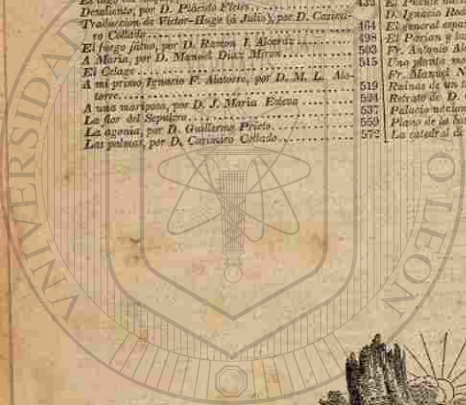 Desaliento, por D. Plácido Fletes 432
Traduccion de Victor-Hugo (á Julio), por D. Casimiro Collado 464
El fuego fátuo, por D. Ramon I. Alcaráz 498
A Maria, por D. Manuel Diaz Miron 503
El Celage 515
A mi primo Ignacio F. Alatorre, por D. M. L. Alatorre 519
A una mariposa, por D. J. Maria Esteva 524
La flor del Sepulcro 537
La agonia, por D. Guillermo Prieto 559
Las palmas, por D. Casimiro Collado 572
El Puente
D. Ignacio Rod
El general espa
El Parian y la
Fr. Antonio Al
Una planta mo
Fr. Manuel N
Ruinas de un
Retrato de D.
Palacio nacion
Plano de la
La catedral de
VNIVERSIDAD
O LEON